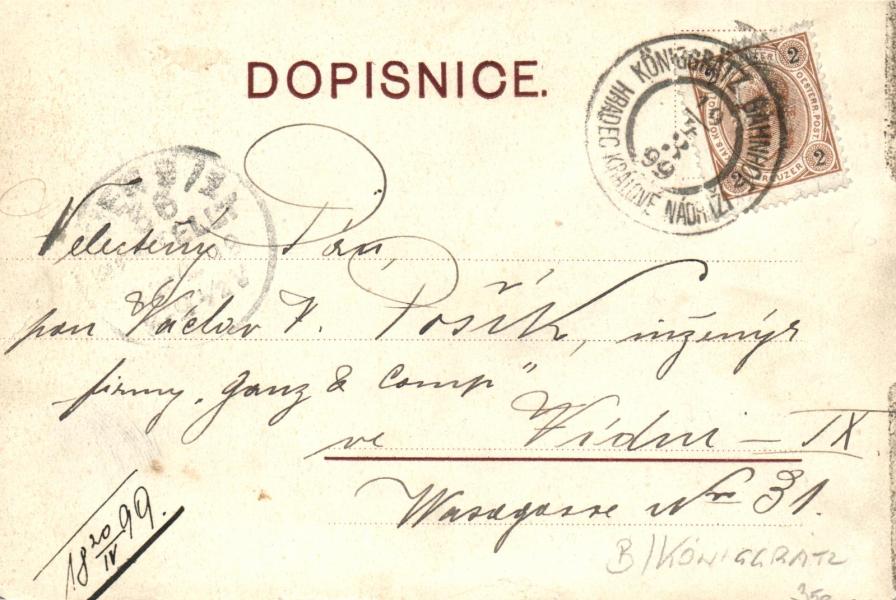 DOPISNICE.
KÖNIGGRÄTZ BAHNHOF
HRADEC KRÁLOVÉ NÁDRAŽÍ
99
2
OESTERR. POST
2
KREUZER
2
Velectěný Pán,
pan Václav V. Pošík, inženýr
firmy „Ganz & Comp“
ve Vídni – IX
Wasagasse Nro 31.
18 20/IV 99.
B/KÖNIGGRÄTZ
350